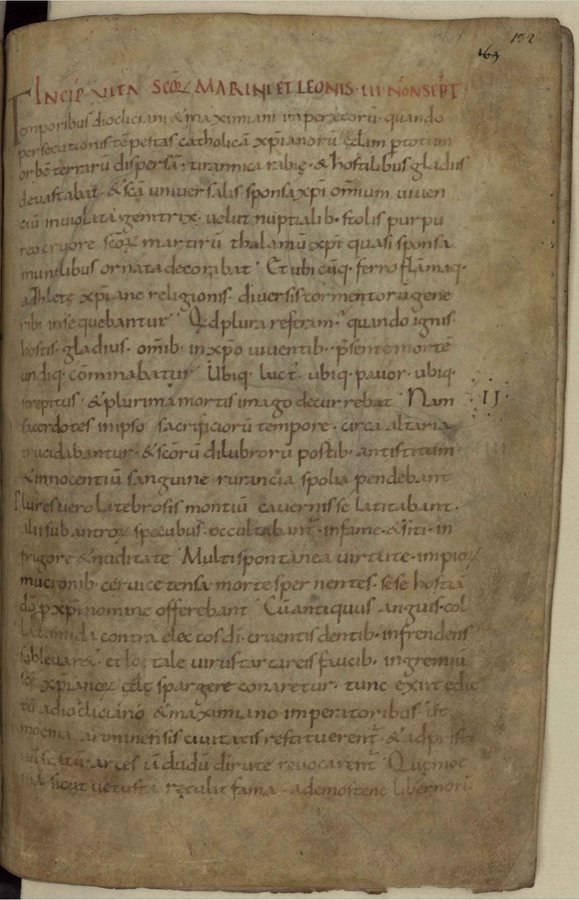 132
163
INCIP VITA SCŌRꝜ MARINI ET LEONIS · III · NON SEPT
Temporibus diocliciani & maximiani imperatorū · quando
persecutionis tēpestas catholicā xp̄ianorū ęcclam p totum
orbē terrarū dispersā · tirannica rabię · & hostilibus gladiis
devastabat · & scā universalis sponsa xp̄i omnium viven
ciū inviolata genitrix · velut nuptialib · stolis purpu
reo cruore scōꝝ martirū thalamū xp̄i quasi sponsa
munilibus ornata decorabat · Et ubicūq · ferro flāmaq ·
athletę xp̄iane religionis · diversis tormentorū gene
ribus insequebantur · Qd plura referam · quando ignis ·
hostis · gladius · omīb · in xp̄o viventib · p̄sentē mortē
undiq · cōminabatur · Ubiq · luct · ubiq · pavor · ubiq ·
strepitus · & plurima mortis imago decurrebat · Nam · II ·
sacerdotes in ipso sacrificiorū tempore · circa altaria
trucidabantur · & scōrū dilubrorū postib · antistitum
& innocentiū sanguine rurancia spolia pendebant
Plures vero latebrosis montiū cavernis se latitabant ·
alii sub antroꝝ specubus · occultabant̄ · in fame · & siti · in
frigore & nuditate · Multi spontanea virtute · impioꝝ
mucronib · cervice tensa · morte spernentes · sese hostiā
dō p xp̄i nomine offerebant · Cū antiquus anguis · col
la tumida contra electos dī · cruentis dentib · infrendens
sublevaret · et loetale virus tartareis faucib · in gremiū
scē xp̄ianoꝝ ęclę spargere conaretur · tunc exiit edic
tū a diocliciano & maximiano imperatoribus · ut
moenia ariminensis civitatis restituerent̄ · & ad pristi
nū statū · arces iā dudū dirute revocarent̄ · Quę moe
nia sicut vetusta retulit fama · a demostene libernorū